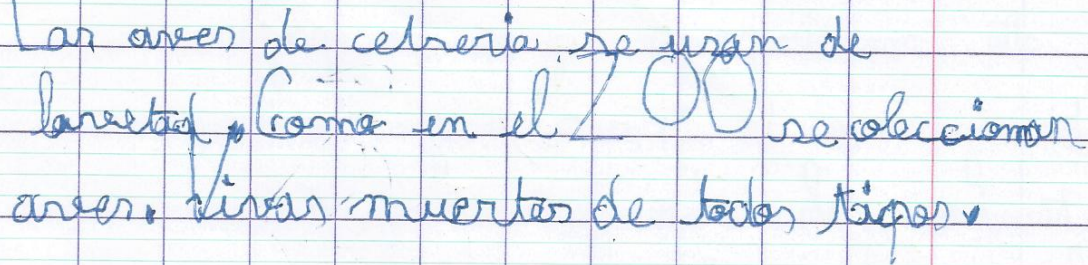 Las aves de cetreria se usan de
varetad, Como en el ZOO se coleccionan
aves. Vivas muertas de todos tipos.